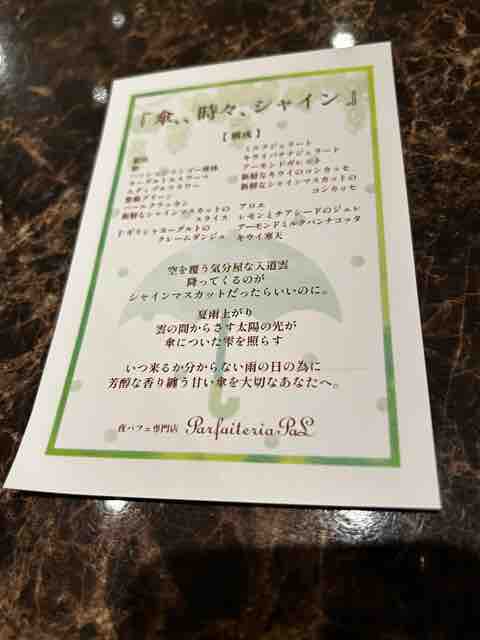 『傘、、時々、シャイン』
【構成】
ヨーグルトエスプーマ
エディブルフラワー
新鮮なシャインマスカットの
スライス
ギリシャヨーグルトの
クレームダンジュ
ミルクジェラート
キウイバナナジェラート
アーモンドガレット
新鮮なキウイのコンカッセ
新鮮なシャインマスカットの
コンカッセ
アロエ
レモンとチアシードのジュレ
アーモンドミルクパンナコッタ
キウイ寒天
空を覆う気分屋な入道雲
降ってくるのが
シャインマスカットだったらいいのに。
夏雨上がり
雲の間からさす太陽の光が
傘についた雫を照らす
いつ来るか分からない雨の日の為に
芳醇な香り纏う甘い傘を大切なあなたへ。
夜パフェ専門店 Parfaiteria PaL